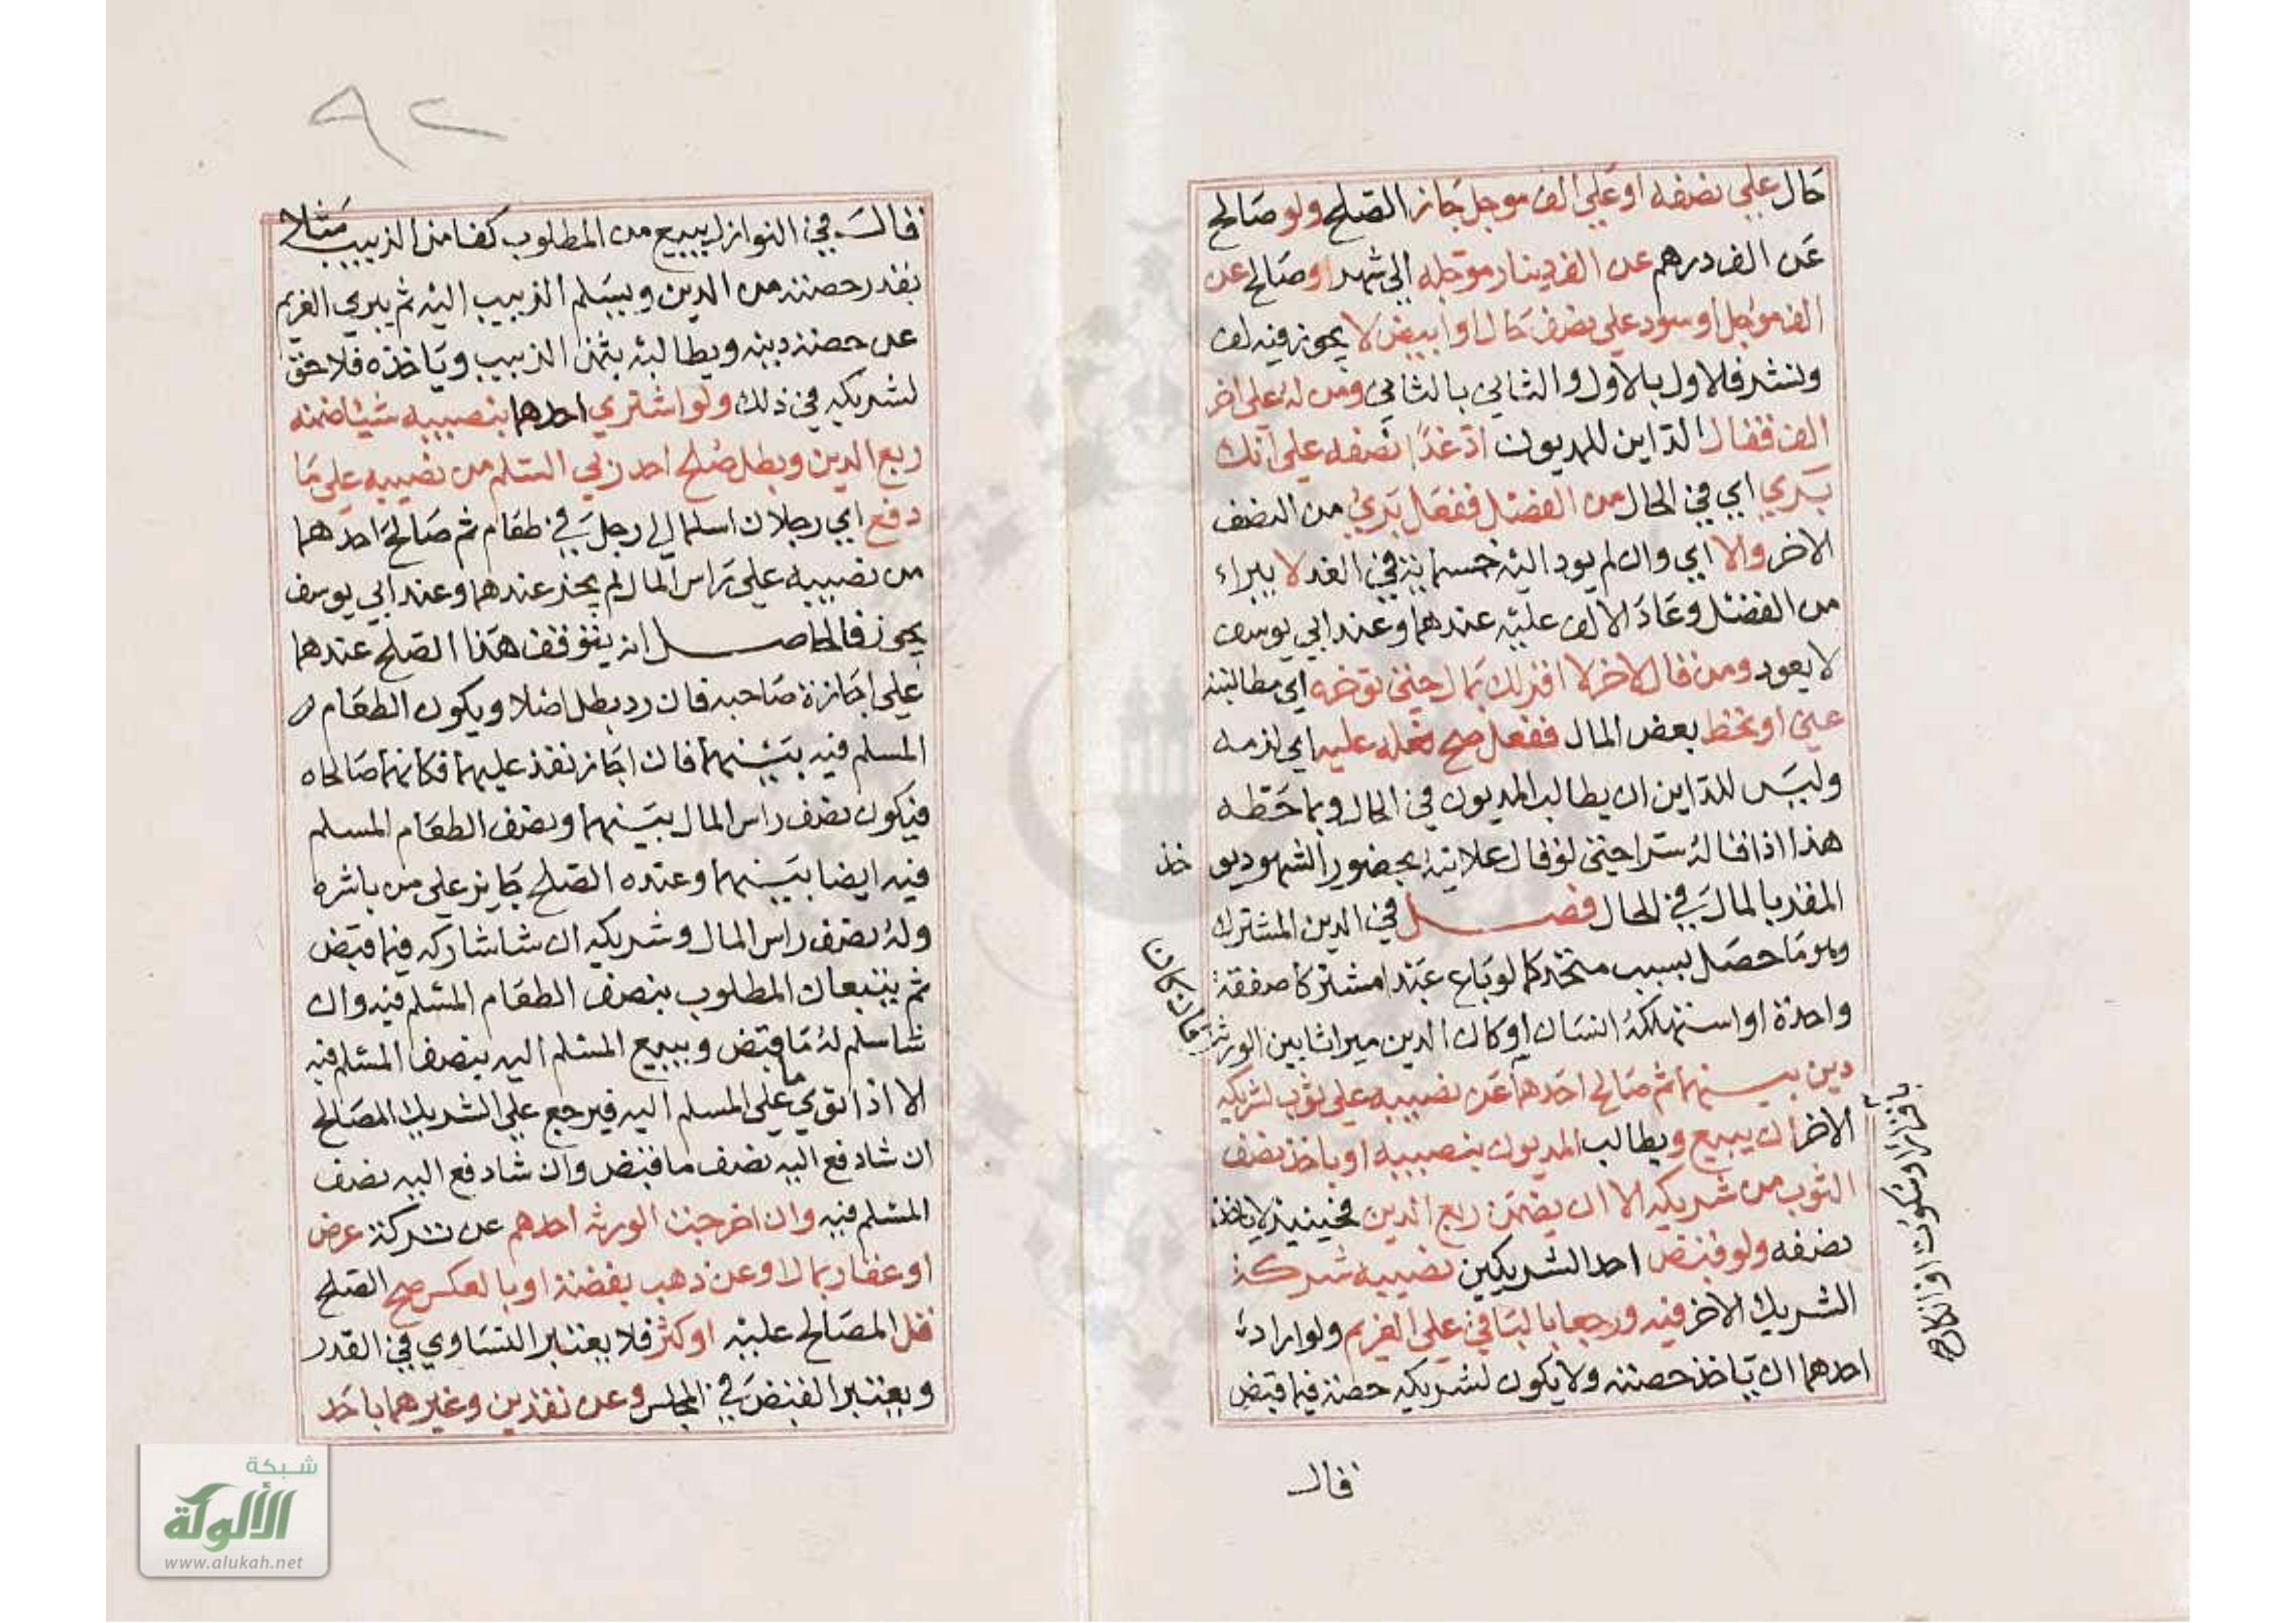 حال علي نصفه او علي الف موجل جاز الصلح ولو صالح
عن الف درهم عن الف دينار موجله الي شهر او صالح عن
الف موجل او سود علي نصف حال او ابيض لا يجوز فيه لف
ونشر فالاول بالاول والثاني بالثاني ومن له علي اخر
الف فقال الداين للمديون اد غدا نصفه علي انك
بري اي في الحال من الفضل ففعل بري من النصف
الاخر والا اي وان لم يود اليه خسماية في الغد لا يبراء
من الفضل وعاد الالف عليه عندهما وعند ابي يوسف
لا يعود ومن قال لاخر لا اقر لك بمال حتي توخره اي مطالبته
عني او تحط بعض المال ففعل صح فعله عليه اي لزمه
وليس للداين ان يطالب المديون في الحال وبما حطه
هذا اذا قاله سرا حتي لو قال علانية بحضور الشهود يو
خذ
المقر بالمال في الحال فصل في الدين المشترك
وهو ما حصل بسبب متحد كما لو باع عبدا مشتركا صفقة
واحدة او استهلكه انسان او كان الدين ميراثا بين الورثة
فان كان
دين بينهما ثم صالح احدهما عن نصيبه علي ثوب لشريكه
الاخر ان يبيع ويطالب المديون بنصيبه او ياخذ نصف
الثوب من شريكه الا ان يضمن ربع الدين فحينيذ لا ياخذ
نصفه ولو قبض احد الشريكين نصيبه شركة
الشريك الاخر فيه ورجعا بالباقي علي الغريم ولو اراد
احدهما ان ياخذ حصته ولا يكون لشريكه حصته فيما قبض
قال
٩٢
قال في النوازل يبيع من المطلوب كفا من الزبيب مثلا
بقدر حصته من الدين ويسلم الزبيب اليه ثم يبري الغريم
عن حصته دينه ويطالبه بثمن الزبيب وياخذه فلا حق
لشريكه في ذلك ولو اشتري احدهما بنصيبه شيئا ضمنه
ربع الدين وبطل صلح احد ربي السلم من نصيبه علي ما
دفع اي رجلان اسلما الي رجل في طعام ثم صالح احدهما
من نصيبه علي راس المال لم يجز عندهما وعند ابي يوسف
يجوز فالحاصل انه يتوقف هذا الصلح عندهما
علي اجازة صاحبه فان رد بطل اصلا ويكون الطعام
المسلم فيه بينهما فان اجاز نفذ عليهما فكانهما صالحاه
فيكون نصف راس المال بينهما ونصف الطعام المسلم
فيه ايضا بينهما وعنده الصلح جايز علي من باشره
وله نصف راس المال وشريكه ان شا شاركه فيما قبض
ثم يتبعان المطلوب بنصف الطعام المسلم فيه وان
شا سلم له ما قبض ويبيع المسلم اليه بنصف المسلم فيه
الا اذا توي ما علي المسلم اليه فيرجع علي الشريك المصالح
ان شا دفع اليه نصف ما قبض وان شا دفع اليه نصف
المسلم فيه وان اخرجت الورثة احدهم عن تركة عرض
او عقار بمال او عن ذهب بفضة او بالعكس صح الصلح
قل المصالح عليه او كثر فلا يعتبر التساوي في القدر
ويعتبر القبض في المجلس وعن نقدين وغيرهما باحد
شبكة
الألوكة
www.alukah.net